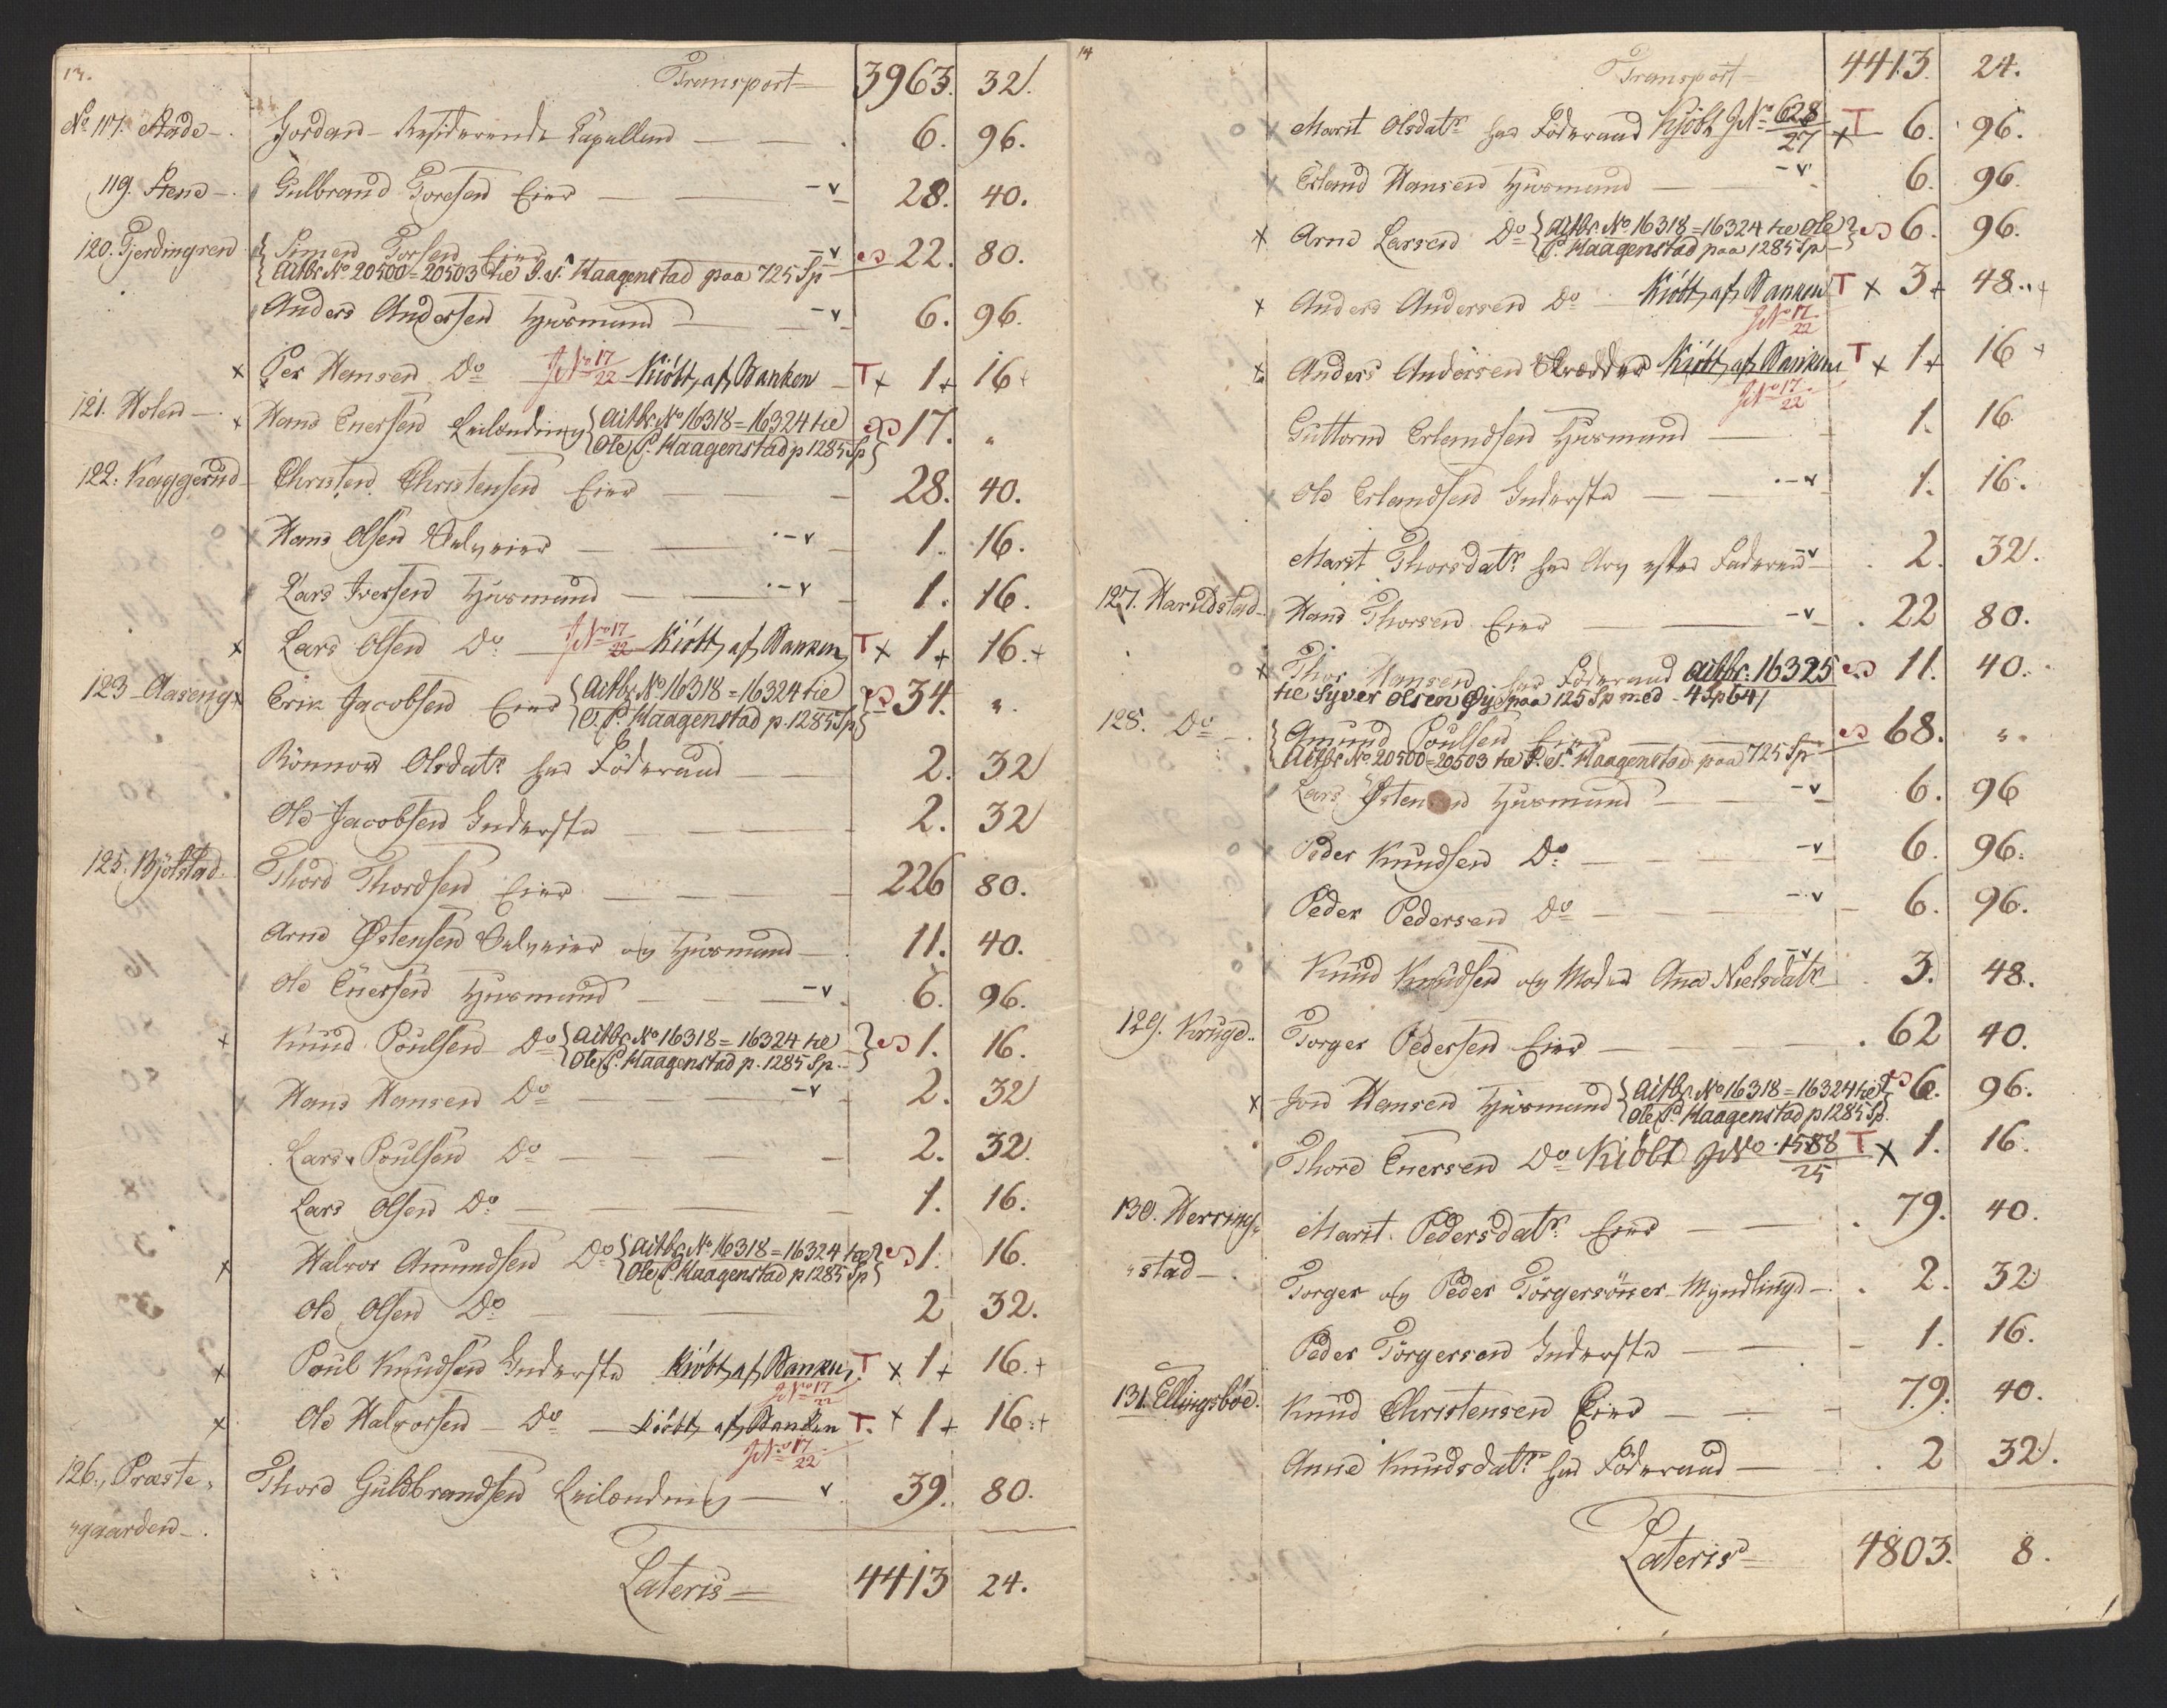 13.
Transport= 3963. 32.
No 117. Stade - Jordan - Residerende Capelland - - 6. 96.
119. Stene - Gulbrand Toresen Eier - - v 28. 40.
120. Tjerdingren { Simen Torsen Eier - v 22. 80.
{ Aitbr. No 20500=20503 tie P. S. Haagenstad paa 725 Sp
Anders Andersen Huusmand - - v 6. 96.
x Per Hansen Do JNo 17/22 Kiöbt af Banken T x 1 + 16 +
121. Holen - x Hans Enersen Leilænding { Aitbr. No 16318=16324 tie 17. "
{ Ole P. Haagenstad p 1285 Sp }
122. Kaggerud Christen Christensen Eier - 28. 40.
Hans Olsen Selveier - - v 1. 16.
Lars Iversen Huusmand - - v 1. 16.
x Lars Olsen Do JNo 17/22 Kiöbt af Banken T x 1 + 16. +
123 Aaseng x Erik Jacobsen Eier { Aitbr. No 16318=16324 tie 34. "
{ O. P. Haagenstad p. 1285 Sp }
Rönnow Olsdatr har Föderaad - - 2. 32
Ole Jacobsen Inderste - - 2. 32
125. Bjölstad Thord Thordsen Eier - - 226 80.
Arne Østensen Selveier og Huusmand - 11. 40.
Ole Enersen Huusmand - - v 6. 96.
+ Knud Poulsen Do { Aitbr. No 16318=16324 tie } 1. 16.
{ Ole P. Haagenstad p. 1285 Sp. }
Hans Hansen Do - - v 2. 32
Lars Poulsen Do - - 2. 32.
Lars Olsen Do - - 1. 16.
x Halvor Amundsen Do { Aitbr. No 16318=16324 tie } 1. 16.
{ Ole P. Haagenstad p 1285 Sp }
Ole Olsen Do - 2 32.
x Poul Knudsen Inderste Kiöbt af Banken T x 1 + 16. +
JNo 17/22
x Ole Halvorsen - Do - Kiöbt af Banken T. + 1 + 16. +
JNo 17/22
126., Præste" Thord Guldbrandsen Leilænding - v 39. 80.
"gaarden -
Lateris= 4413 24.
14
Transport= 4413. 24.
Marit Olsdatr har Föderaad Kjöbt JNo 628/27 x T 6. 96.
Erland Hansen Huusmand - - v 6. 96.
x Arne Larsen Do { Aitbr. No 16318=16324 tie Ole } 6. 96.
{ P. Haagenstad paa 1285 Sp }
x Anders Andersen Do Kiöbt af Banken T x 3 + 48. +
JNo 17/22
x Anders Andersen Skrædder Kiöbt af Banken T x 1 + 16 +
JNo 17/22
Guttorm Erlandsen Huusmand - 1. 16.
Ole Erlandsen Inderste - - v 1. 16.
Marit Thorsdatr har Arv efter Faderen - v 2. 32.
127. Harildstad Hans Thorsen Eier - - v 22 80.
x Thor Hansen har Föderaad Aitbr. 16325 11. 40.
tie Syver Olsen Øy paa 125 Sp med - 4 Sp 64/
128. Do - { Amund Poulsen Eier 68. "
{ Aitbr. No 20500=20503 tie P. S. Haagenstad paa 725 Sp
Lars Østensen Huusmand - - v 6. 96
Peder Knudsen Do - - v 6. 96.
Peder Pedersen Do - - v 6. 96.
Knud Knudsen og Moder Ane Nielsdatr - v 3. 48.
129. Kruge Torger Pedersen Eier - 62 40.
x Jon Hansen Huusmand { Aitbr. No 16318=16324 tie } 6. 96.
{ Ole P. Haagenstad p 1285 Sp.
Thore Enersen Do Kiöbt JNo 1588/25 T x 1. 16.
130. Herring" Marit Pedersdatr Eier - 79. 40.
"stad - Torger og Peder Törgersönner Myndling - 2. 32
Peder Törgersen Inderste - - 1. 16.
131. Ellingsböe. Knud Christensen Eier - - 79. 40.
Anne Knudsdatr har Föderaad - 2 32.
Lateris= 4803. 8.